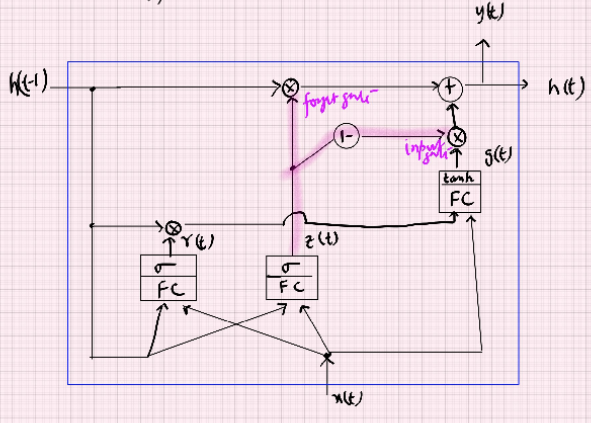 y(t)
h(t-1)
h(t)
×
+
forget gate
1-
input gate
×
g(t)
tanh
FC
×
r(t)
z(t)
σ
FC
σ
FC
x(t)